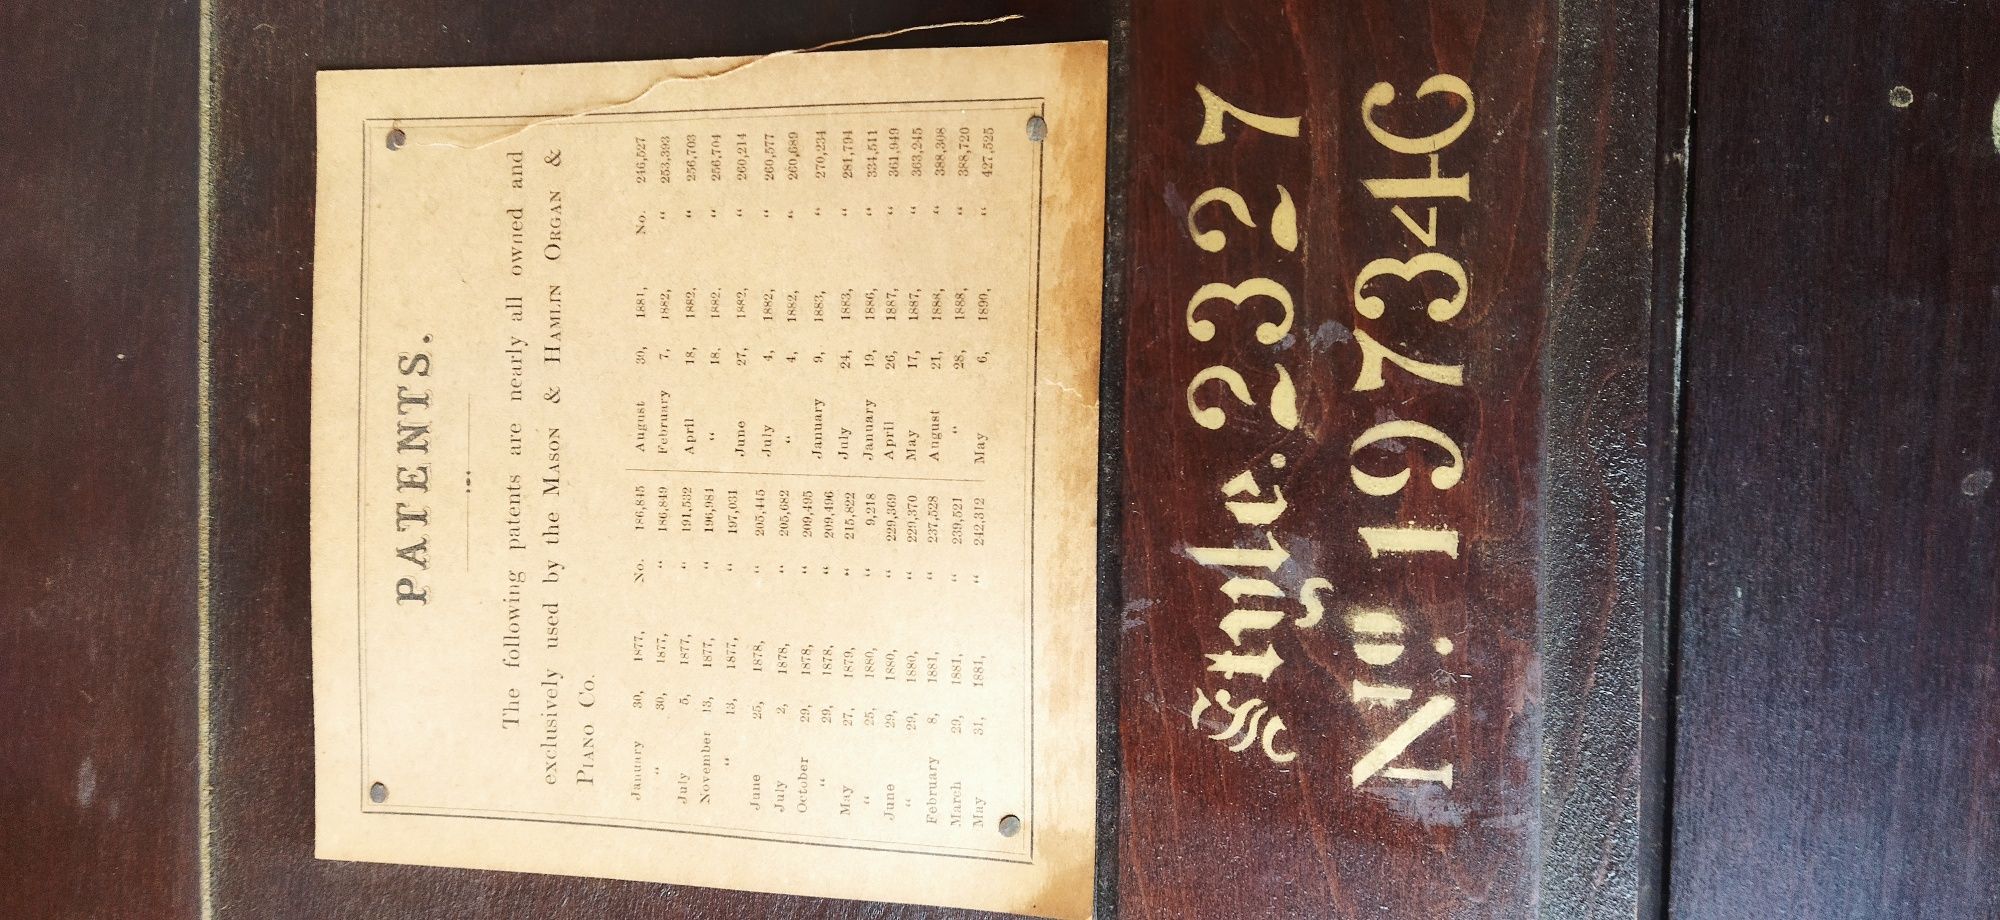 PATENTS.
The following patents are nearly all owned and
exclusively used by the MASON & HAMLIN ORGAN &
PIANO CO.
January 30, 1877, No. 186,845
" 30, 1877, " 186,849
July 5, 1877, " 191,532
November 13, 1877, " 196,984
" 13, 1877, " 197,031
June 25, 1878, " 205,445
July 2, 1878, " 205,682
October 29, 1878, " 209,495
" 29, 1878, " 209,496
May 27, 1879, " 215,822
" 25, 1880, " 9,218
June 29, 1880, " 229,369
" 29, 1880, " 229,370
February 8, 1881, " 237,528
March 29, 1881, " 239,521
May 31, 1881, " 242,312
August 30, 1881, No. 246,527
February 7, 1882, " 253,393
April 18, 1882, " 256,703
" 18, 1882, " 256,704
June 27, 1882, " 260,214
July 4, 1882, " 260,577
" 4, 1882, " 260,689
January 9, 1883, " 270,234
July 24, 1883, " 281,794
January 19, 1886, " 334,511
April 26, 1887, " 361,949
May 17, 1887, " 363,245
August 21, 1888, " 388,308
" 28, 1888, " 388,720
May 6, 1890, " 427,525
Style. 2327
No. 19734C